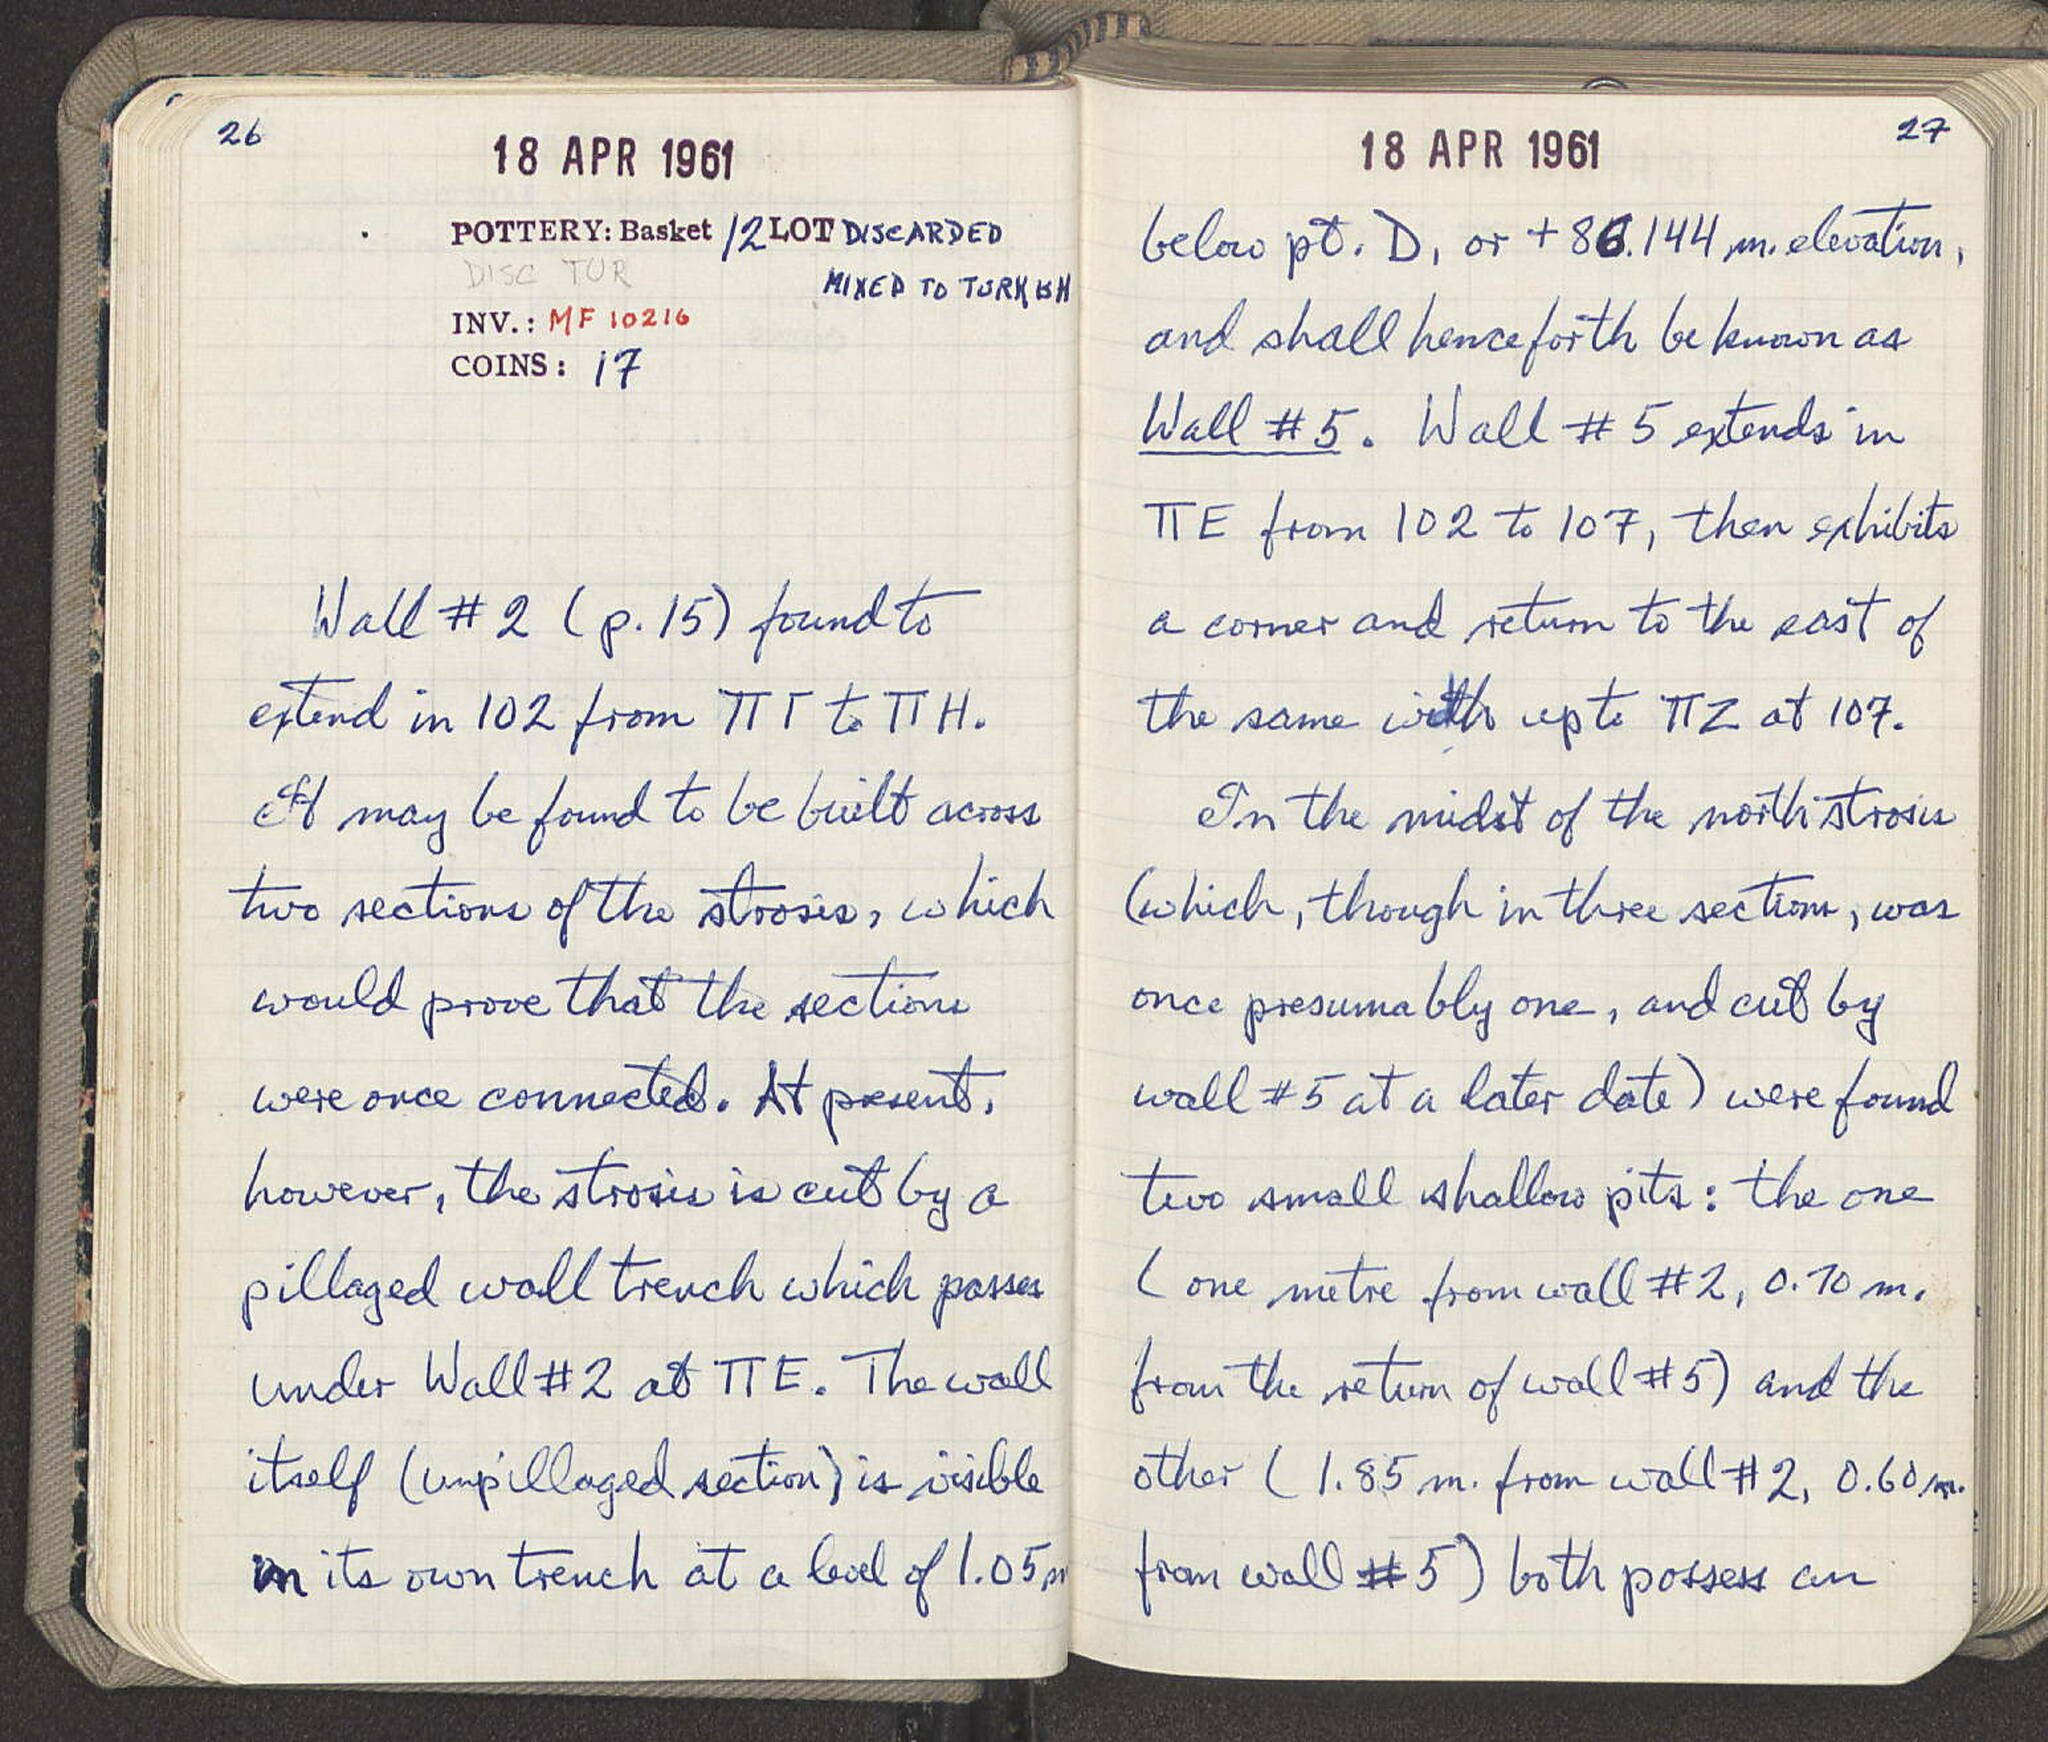 26
18 APR 1961
POTTERY: Basket 12 LOT DISCARDED
DISC TUR
MIXED TO TURKISH
INV.: MF 10216
COINS: 17
Wall #2 (p. 15) found to
extend in 102 from ΠΓ to ΠΗ.
It may be found to be built across
two sections of the strosis, which
would prove that the sections
were once connected. At present,
however, the strosis is cut by a
pillaged wall trench which passes
under Wall #2 at ΠΕ. The wall
itself (unpillaged section) is visible
in its own trench at a level of 1.05 m
27
18 APR 1961
below pt. D, or +86.144 m. elevation,
and shall henceforth be known as
Wall #5. Wall #5 extends in
ΠΕ from 102 to 107, then exhibits
a corner and return to the east of
the same width up to ΠΖ at 107.
In the midst of the north strosis
(which, though in three sections, was
once presumably one, and cut by
wall #5 at a later date) were found
two small shallow pits: the one
(one metre from wall #2, 0.70 m.
from the return of wall #5) and the
other (1.85 m. from wall #2, 0.60 m.
from wall #5) both possess an